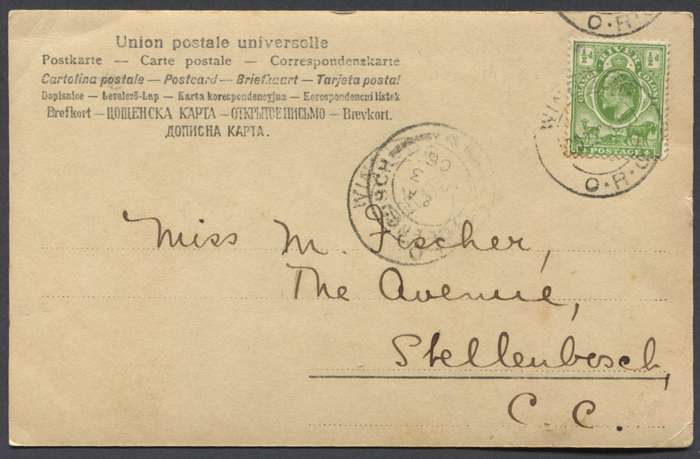 Union postale universelle
Postkarte — Carte postale — Correspondenzkarte
Cartolina postale — Postcard — Briefkaart — Tarjeta postal
Dopisnice — Levelező-Lap — Karta korespondencyjna — Korespondenzní listek
Brefkort — ЦОЩЕНСКА КАРТА — ОТКРЫТОЕ ПИСЬМО — Brevkort.
ДОПИСНА КАРТА.
O·R·
½d ½d
ORANGE RIVER COLONY
POSTAGE
WIN
O·R·C
WIN
OSCH
Miss M. Fischer,
The Avenue,
Stellenbosch,
C. C.